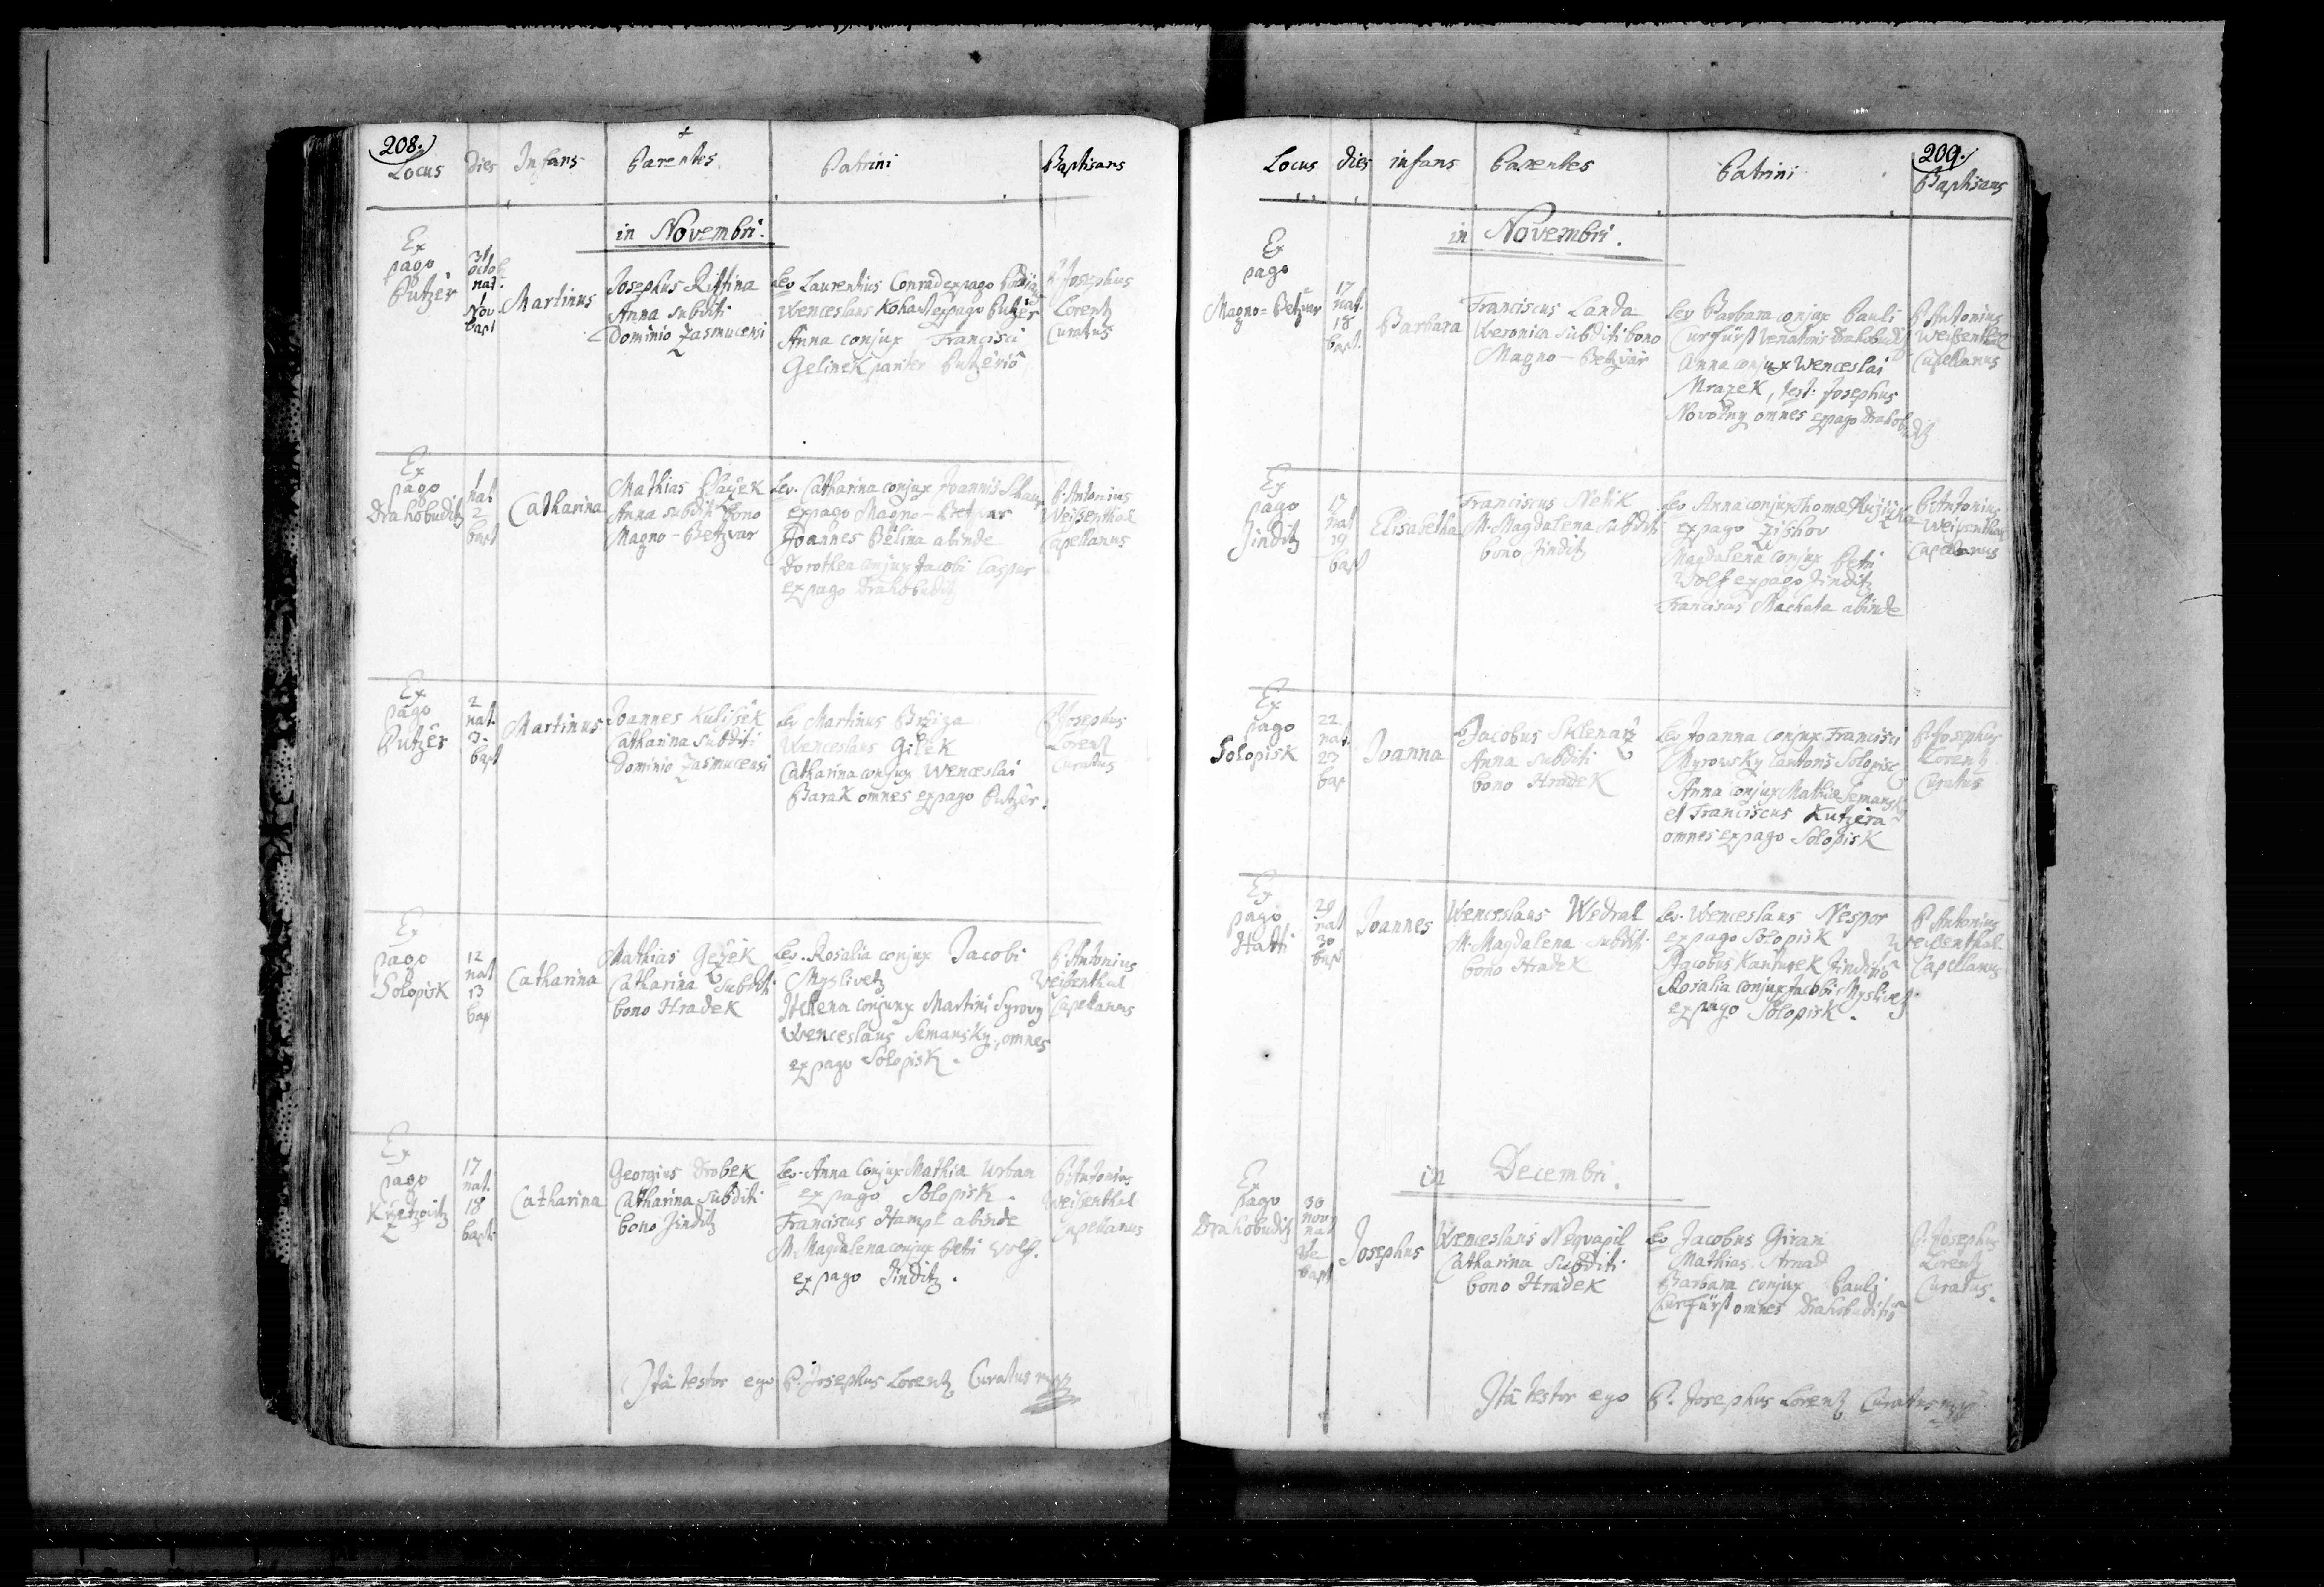 208.
Locus dies Infans Parentes Patrini Baptisans
in Novembri.
Ex
pago
Putzer
31
octob
nat.
1
Nov
bapt
Martinus
Josephus
Anna subditi
Dominio Zasmucensi
Lev Laurentius Conrad ex pago
Wenceslaus Kohaut ex pago Putzer
Anna conjux Francisci
Gelinek pariter
P. Josephus
Lorentz
Curatus
Ex
pago
Drahobuditz
1
nat
2
bapt
Catharina
Mathias
Anna subditi bono
Magno-Betzvar
Lev. Catharina conjux Joannis
ex pago Magno-Betzvar
Joannes Bělina abinde
Dorothea conjux Jacobi Caspar
ex pago Drahobuditz
P. Antonius
Weisenthal
Capellanus
Ex
pago
Putzer
2
nat.
3.
bapt
Martinus
Joannes Kulissek
Catharina subditi
Dominio Zasmucensi
Lev Martinus Bržiza
Wenceslaus Gilek
Catharina conjux Wenceslai
Barak omnes ex pago Putzer.
P. Josephus
Lorentz
Curatus
Ex
pago
Solopisk
12
nat
13
bap
Catharina
Mathias
Catharina subditi
bono Hradek
Lev. Rosalia conjux Jacobi
Myslivetz
Helena conjunx Martini Syrovy
Wenceslaus Semansky, omnes
ex pago Solopisk.
P. Antonius
Weisenthal
Capellanus
Ex
pago
17
nat.
18
bapt.
Catharina
Georgius Drobek
Catharina subditi
bono Jinditz
Lev. Anna conjux Mathia Urban
ex pago Solopisk.
Franciscus Hampl abinde
M. Magdalena conjux Petri Wolf.
ex pago Jinditz.
P. Antonius
Weisenthal
Capellanus
Ita testor ego P. Josephus Lorentz Curatus mpp
209.
Locus dies infans Parentes Patrini Baptisans
in Novembri.
Ex
pago
Magno-Betzvar
17
nat.
18
bapt.
Barbara
Franciscus Landa
Veronica subditi bono
Magno-Betzvar
Lev Barbara conjux Pauli
Curfürst Venatoris
Anna conjux Wenceslai
Mrazek, test. Josephus
Novotny omnes ex pago Drahobuditz
P. Antonius
Weisenthal
Capellanus
Ex
pago
Jinditz
nat
19
bapt
Elisabetha
Franciscus Netik
M. Magdalena subditi
bono Jinditz
Lev Anna conjux Thomæ
ex pago Zishov
Magdalena conjux Petri
Wolf ex pago Jinditz
Franciscus Machata abinde
P. Antonius
Weisenthal
Capellanus
Ex
pago
Solopisk
22
nat.
23
bap
Joanna
Jacobus Sklenarz
Anna subditi
bono Hradek
Lev Joanna conjux Francisci
Myrowsky Cantoris
Anna conjux Mathiæ Semansky
et Franciscus Kutzera
omnes ex pago Solopisk
P. Josephus
Lorentz
Curatus
Ex
pago
Hatti
29
nat
30
bap
Joannes
Wenceslaus Wedral
M. Magdalena subditi
bono Hradek
Lev. Wenceslaus Nespor
ex pago Solopisk
Jacobus Kanturek
Rosalia conjux Jacobi Myslivetz
ex pago Solopisk.
P. Antonius
Weisenthal
Capellanus
in Decembri.
Ex
pago
Drahobuditz
30
nov
nat
bapt
Josephus
Wenceslaus Neqvapil
Catharina subditi
bono Hradek
Lev Jacobus Giran
Mathias Strnad
Barbara conjux Pauli
Curfürst omnes
P. Josephus
Lorentz
Curatus.
Ita testor ego P. Josephus Lorentz Curatus mpp